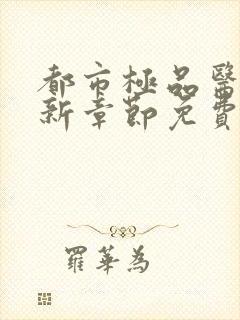 都市極品醫
新章節免費
羅華為